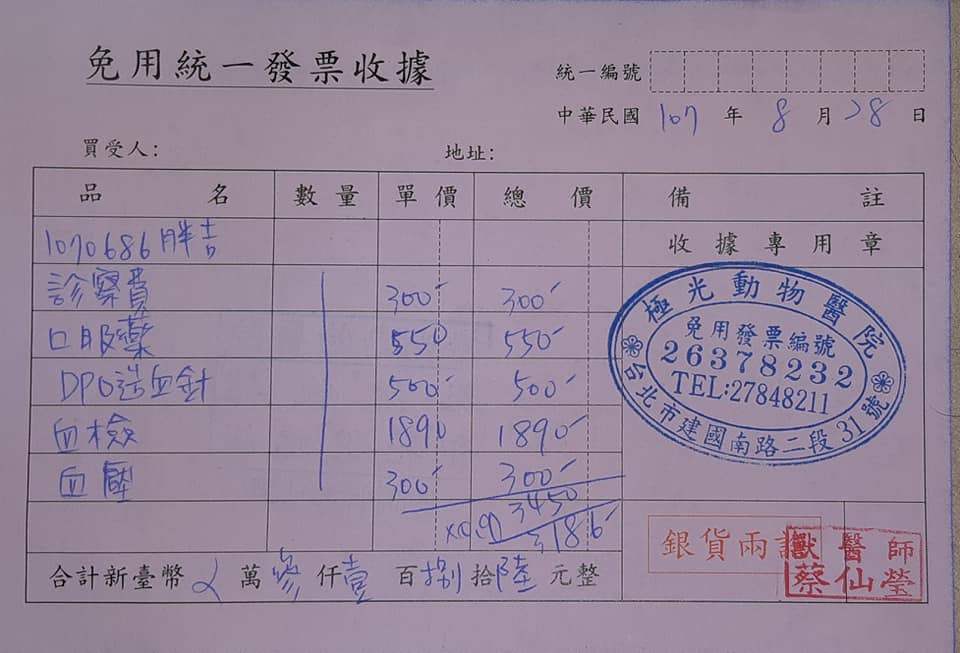 免用統一發票收據
統一編號
中華民國 107 年 8 月 28 日
買受人: 地址:
品名 數量 單價 總價 備註
1070686 胖吉 收據專用章
診察費 300 300
口服藥 550 550
DPO造血針 500 500
血檢 1890 1890
血壓 300 300
3450
x0.9 3186
合計新臺幣 萬參仟壹百捌拾陸元整
極光動物醫院
免用發票編號
26378232
TEL:27848211
台北市建國南路二段31號
銀貨兩訖
獸醫師
蔡仙瑩